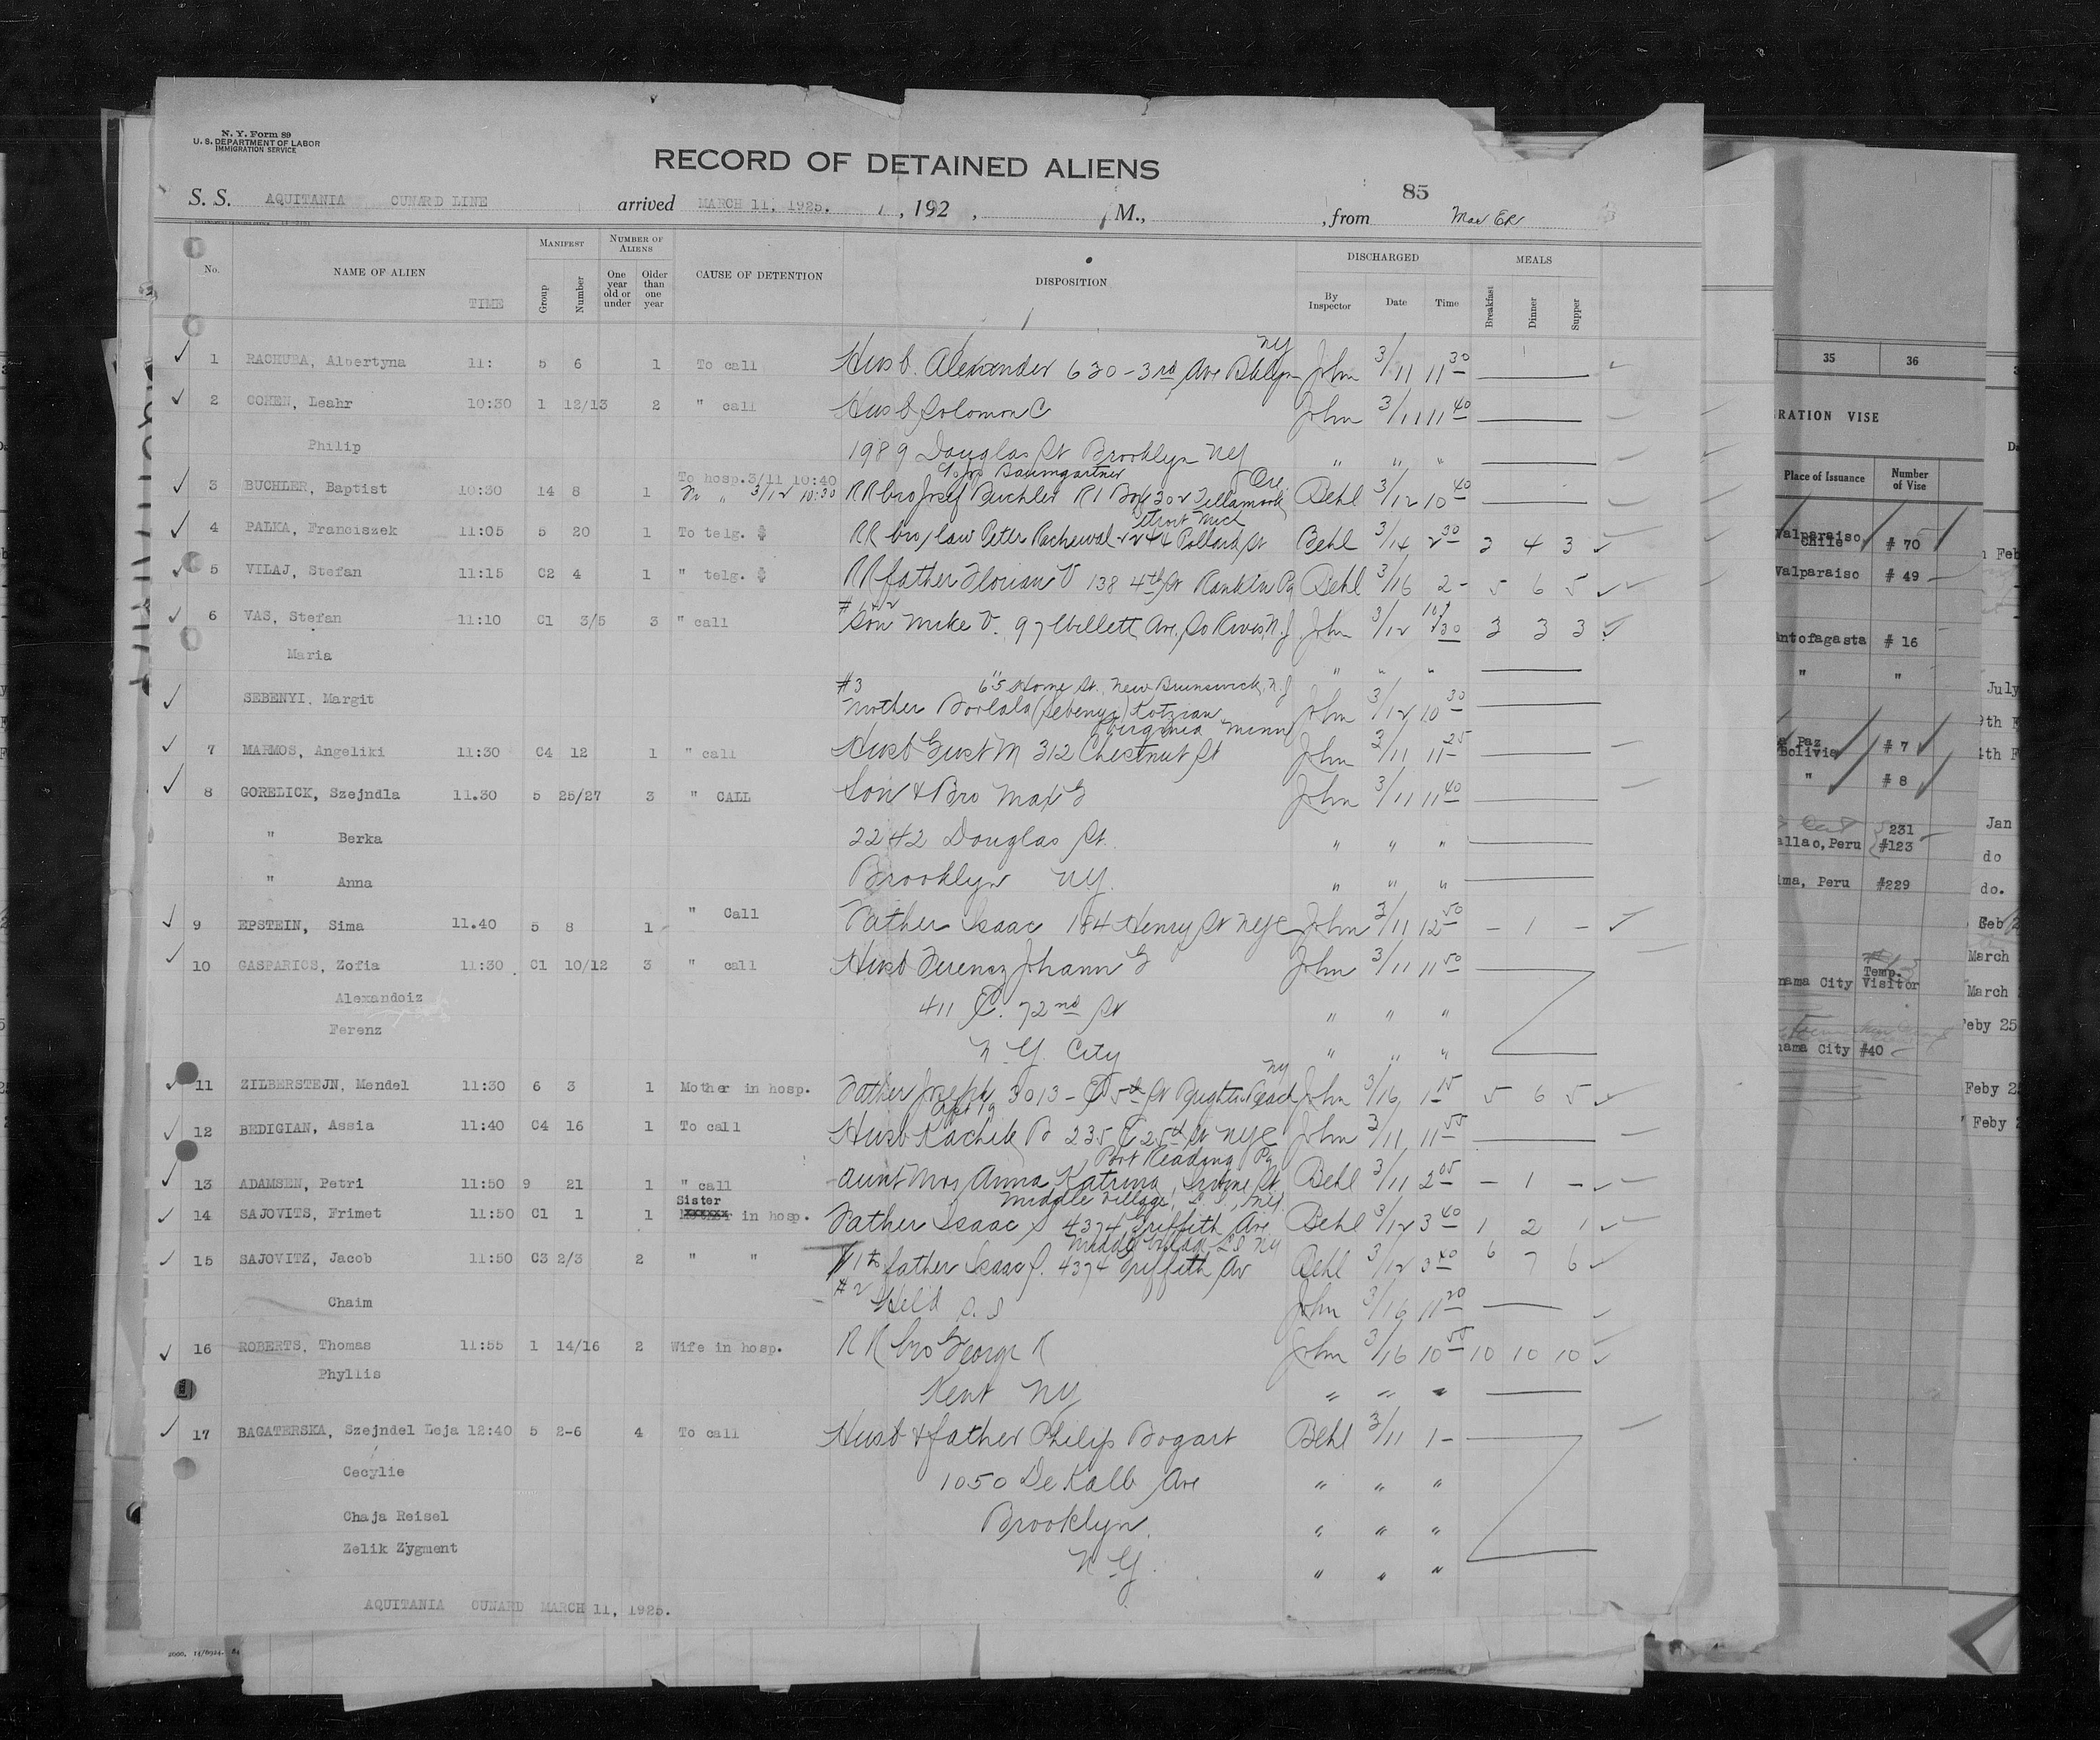 N. Y. Form 89
U. S. DEPARTMENT OF LABOR
IMMIGRATION SERVICE
RECORD OF DETAINED ALIENS
85
S. S. AQUITANIA CUNARD LINE arrived MARCH 11, 1925. , 192 , M., , from
No. NAME OF ALIEN TIME MANIFEST Group Number NUMBER OF ALIENS One year old or under Older than one year CAUSE OF DETENTION DISPOSITION DISCHARGED By Inspector Date Time MEALS Breakfast Dinner Supper
1 RACHUBA, Albertyna 11: 5 6 1 To call Husb. Alexander 630 - 3rd Ave Bklyn NY John 3/11 11 30
2 COHEN, Leahr 10:30 1 12/13 2 " call Husb Solomon C John 3/11 11 40
Philip 1989 Douglas St Brooklyn NY " " "
To hosp. 3/11 10:40 c/o Jos Baumgartner Ore.
3 BUCHLER, Baptist 10:30 14 8 1 " 3/12 10:30 RR bro Josef Buchler R1 Box 302 Tillamook Behl 3/12 10 40
4 PALKA, Franciszek 11:05 5 20 1 To telg. $ RR bro/law Peter 2244 Pollard St Mich Behl 3/14 2 30 3 4 3
5 VILAJ, Stefan 11:15 C2 4 1 " telg. $ RR father Florian V 138 4th St Rankin Pa Behl 3/16 2 - 5 6 5
6 VAS, Stefan 11:10 C1 3/5 3 " call Son Mike V. 97 Willett Ave., So River, N.J John 3/12 10 30 3 3 3
Maria " " "
#3 65 Home St., New Brunswick, N.J
SEBENYI, Margit Mother (Sebenyi) Kotzian John 3/12 10 30
Virginia Minn
7 MARMOS, Angeliki 11:30 C4 12 1 " call Husb Gust M 312 Chestnut St John 3/11 11 25
8 GORELICK, Szejndla 11.30 5 25/27 3 " CALL Son & Bro Max G John 3/11 11 40
" Berka 2242 Douglas St. " " "
" Anna Brooklyn NY. " " "
9 EPSTEIN, Sima 11.40 5 8 1 " Call Father Isaac 184 Henry St NYC John 3/11 12 50 - 1 -
10 GASPARICS, Zofia 11:30 C1 10/12 3 " call Husb Ferencz Johann G John 3/11 11 50
Alexandoiz 411 E. 72nd St " " "
Ferenz N.Y. City " " "
11 ZILBERSTEJN, Mendel 11:30 6 3 1 Mother in hosp. Father Joseph 3013 - E 5th St Brighton Beach NY John 3/16 1 15 5 6 5
12 BEDIGIAN, Assia 11:40 C4 16 1 To call Husb Kachik B 235 E 25th St NYC John 3/11 11 55
Port Reading Pa
13 ADAMSEN, Petri 11:50 9 21 1 " call Aunt Mrs Anna Katrina, St Behl 3/11 2 05 - 1 -
Sister Middle Village, L.I., NY.
14 SAJOVITS, Frimet 11:50 C1 1 1 in hosp. Father Isaac S 4374 Griffith Ave Behl 3/12 3 40 1 2 1
Middle Village L I NY
15 SAJOVITZ, Jacob 11:50 C3 2/3 2 " " #1 to father Isaac S. 4374 Griffith Av Behl 3/12 3 40 6 7 6
Chaim #2 Held S. I John 3/16 11 20
16 ROBERTS, Thomas 11:55 1 14/16 2 Wife in hosp. RR bro George R John 3/16 10 55 10 10 10
Phyllis Kent NY " " "
17 BAGATERSKA, Szejndel Leja 12:40 5 2-6 4 To call Husb & father Philip Bogart Behl 3/11 1 -
Cecylie 1050 De Kalb Ave " " "
Chaja Reisel Brooklyn. " " "
Zelik Zygment N.Y. " " "
AQUITANIA CUNARD MARCH 11, 1925.
35 36
RATION VISE
Place of Issuance Number of Vise
Valparaiso Chile # 70
Valparaiso # 49
Antofagasta # 16
" "
a Paz Bolivia # 7
" # 8
231
allao, Peru #123
ima, Peru #229
nama City Temp. Visitor
nama City #40
Feb
July
9th F
4th F
Jan
do
do.
Feb
March
March
Feby 25
Feby 2
" Feby 2